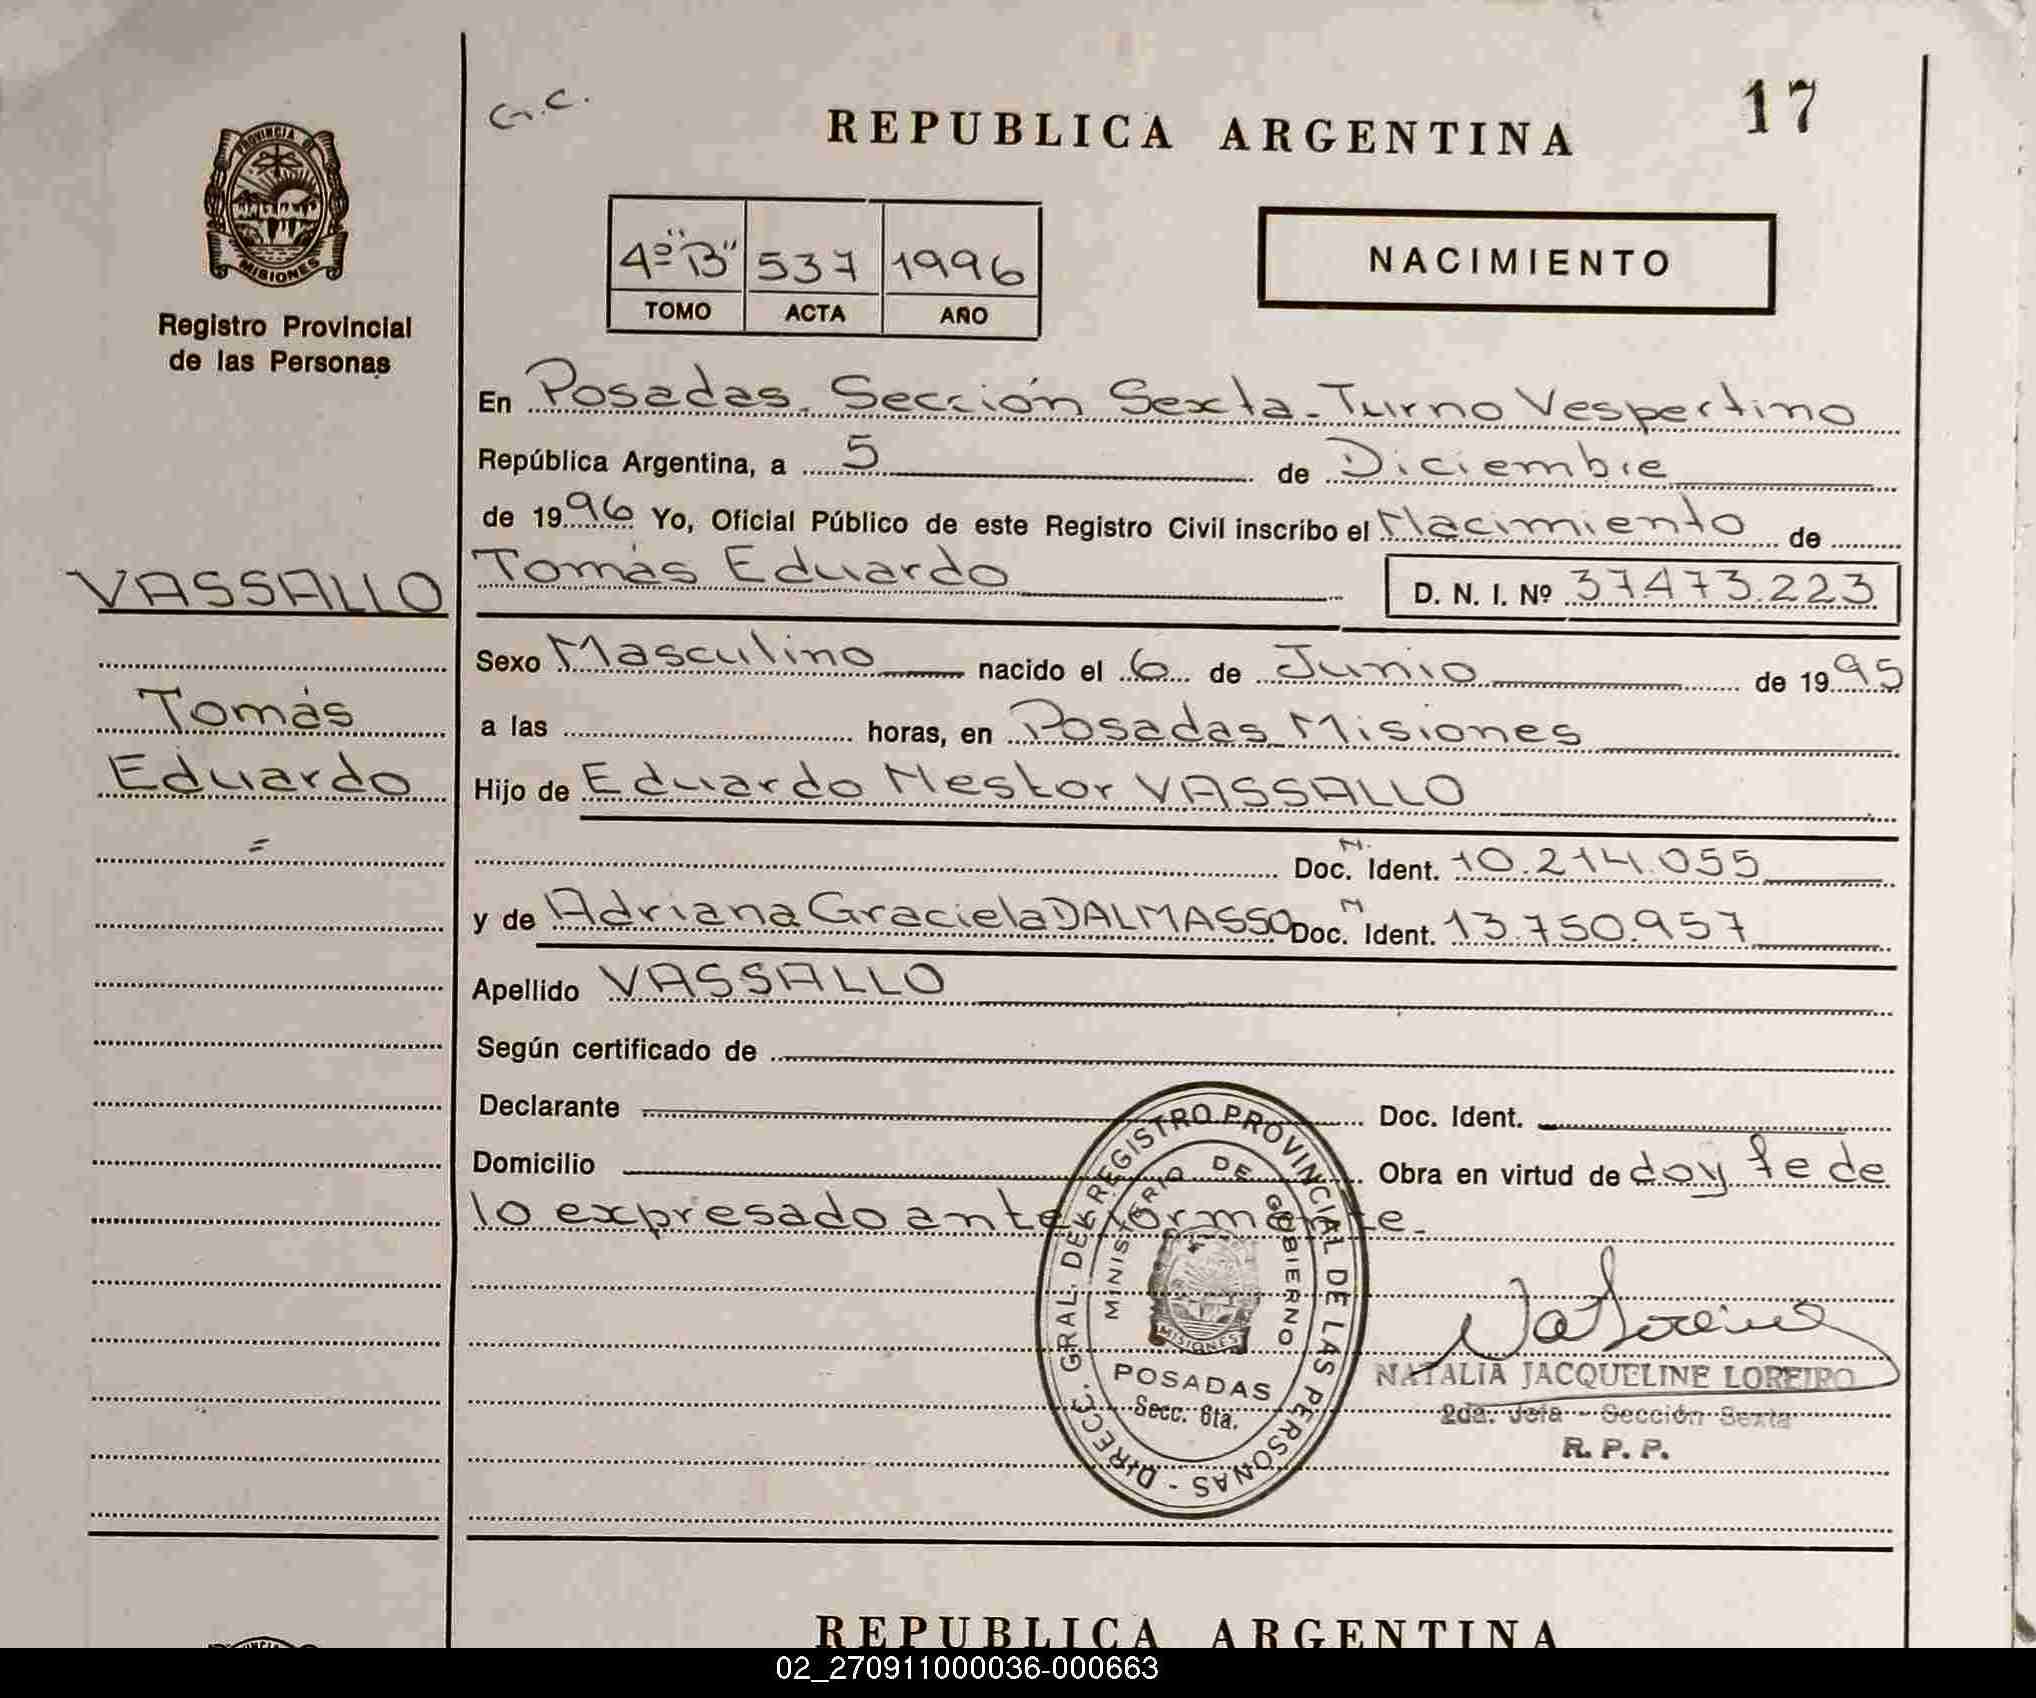 G.C.
REPUBLICA ARGENTINA
17
PROVINCIA DE
MISIONES
Registro Provincial
de las Personas
4º "B" 537 1996
TOMO ACTA AÑO
NACIMIENTO
En Posadas. Sección Sexta - Turno Vespertino
República Argentina, a 5 de Diciembre
de 1996 Yo, Oficial Público de este Registro Civil inscribo el Nacimiento de
VASSALLO
Tomás Eduardo D. N. I. Nº 37473.223
Sexo Masculino nacido el 6 de Junio de 1995
Tomás
a las horas, en Posadas Misiones
Eduardo
Hijo de Eduardo Nestor VASSALLO
=
Doc. N. Ident. 10.214.055
y de Adriana Graciela DALMASSO Doc. N Ident. 13.750.957
Apellido VASSALLO
Según certificado de
Declarante Doc. Ident.
Domicilio Obra en virtud de doy fe de
lo expresado anteriormente.
DIRECC. GRAL. DEL REGISTRO PROVINCIAL DE LAS PERSONAS -
MINISTERIO DE GOBIERNO
MISIONES
POSADAS
Secc. 6ta.
NATALIA JACQUELINE LOREIRO
2da. Jefa - Sección Sexta
R. P. P.
REPUBLICA ARGENTINA
02_270911000036-000663